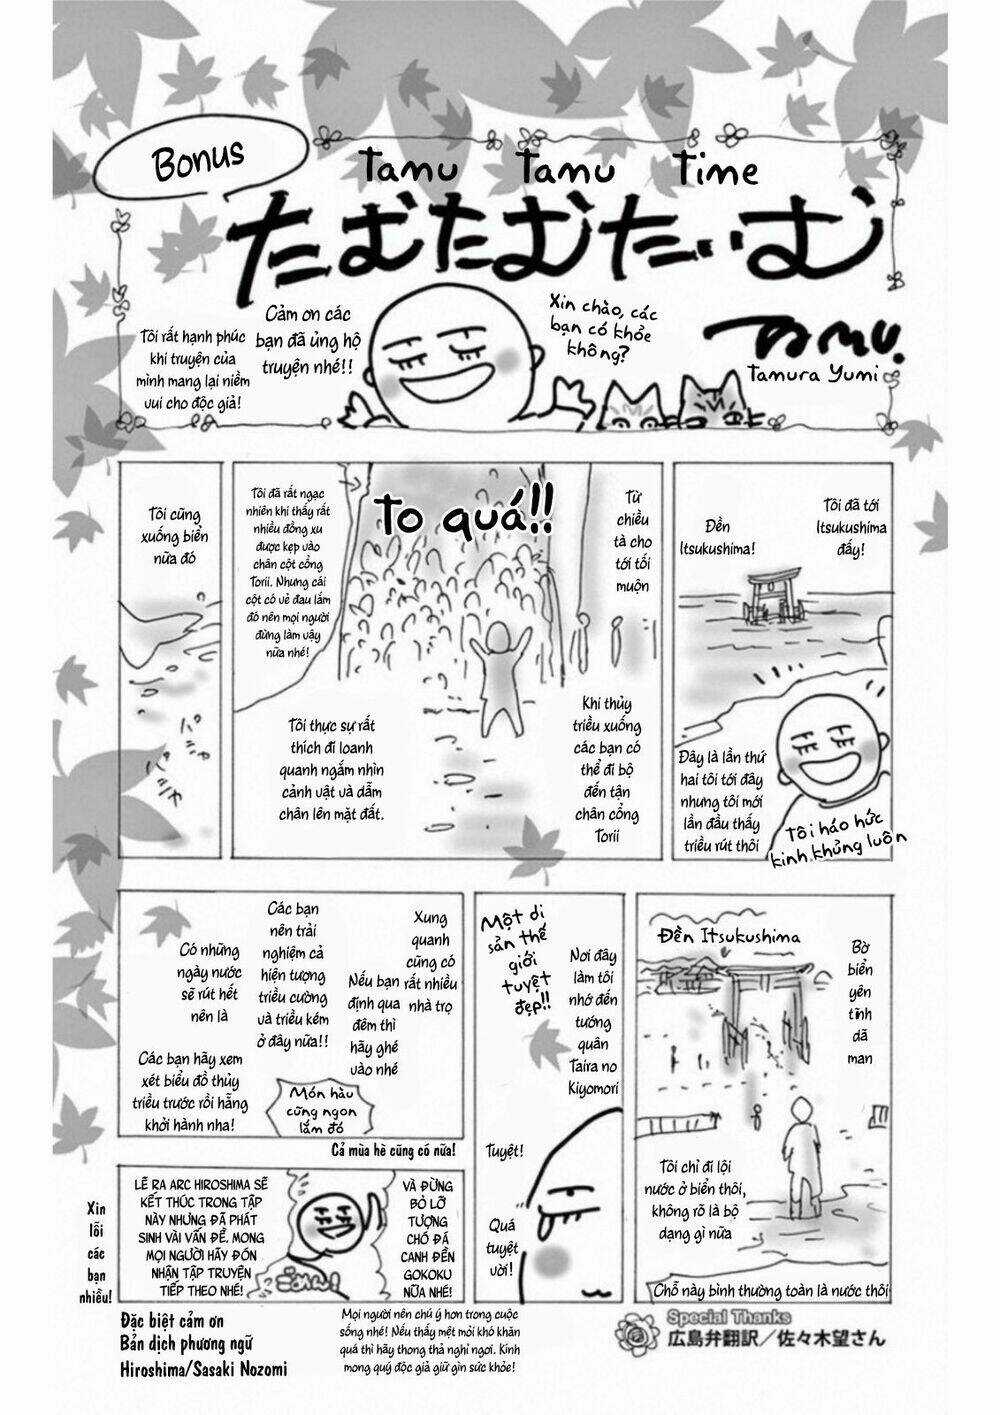 Bonus
Tamu Tamu Time
たむたむたぃむ
Cảm ơn các
bạn đã ủng hộ
truyện nhé!!
Tôi rất hạnh phúc
khi truyện của
mình mang lại niềm
vui cho độc giả!
Xin chào, các
bạn có khỏe
không?
TAMU.
Tamura Yumi
Tôi đã tới
Itsukushima
đấy!
Đền
Itsukushima!
Đây là lần thứ
hai tôi tới đây
nhưng tôi mới
lần đầu thấy
triều rút thôi
Tôi háo hức
kinh khủng luôn
Từ
chiều
tà cho
tới tối
muộn
To quá!!
Tôi đã rất ngạc
nhiên khi thấy rất
nhiều đồng xu
được kẹp vào
chân cột cổng
Torii. Nhưng cái
cột có vẻ đau lắm
đó nên mọi người
đừng làm vậy
nữa nhé!
Khi thủy
triều xuống
các bạn có
thể đi bộ
đến tận
chân cổng
Torii
Tôi thực sự rất
thích đi loanh
quanh ngắm nhìn
cảnh vật và dẫm
chân lên mặt đất.
Tôi cũng
xuống biển
nữa đó
パシャ
パシャ
Đền Itsukushima
Bờ
biển
yên
tĩnh
dã
man
Tôi chỉ đi lội
nước ở biển thôi,
không rõ là bộ
dạng gì nữa
Chỗ này bình thường toàn là nước thôi
Một di
sản thế
giới
tuyệt
đẹp!!
Nơi đây
làm tôi
nhớ đến
tướng
quân
Taira no
Kiyomori
Tuyệt!
Quá
tuyệt
vời!
Xung
quanh
cũng có
rất nhiều
nhà trọ
Nếu bạn
định qua
đêm thì
hãy ghé
vào nhé
Các bạn
nên trải
nghiệm cả
hiện tượng
triều cường
và triều kém
ở đây nữa!!
Có những
ngày nước
sẽ rút hết
nên là
Các bạn hãy xem
xét biểu đồ thủy
triều trước rồi hẵng
khởi hành nha!
Món hàu
cũng ngon
lắm đó
Cả mùa hè cũng có nữa!
VÀ ĐỪNG
BỎ LỠ
TƯỢNG
CHÓ ĐÁ
CANH ĐỀN
GOKOKU
NỮA NHÉ!
LẼ RA ARC HIROSHIMA SẼ
KẾT THÚC TRONG TẬP
NÀY NHƯNG ĐÃ PHÁT
SINH VÀI VẤN ĐỀ. MONG
MỌI NGƯỜI HÃY ĐÓN
NHẬN TẬP TRUYỆN
TIẾP THEO NHÉ!
ごめん!
Xin
lỗi
các
bạn
nhiều!
Đặc biệt cảm ơn
Bản dịch phương ngữ
Hiroshima/Sasaki Nozomi
Mọi người nên chú ý hơn trong cuộc
sống nhé! Nếu thấy mệt mỏi khó khăn
quá thì hãy thong thả nghỉ ngơi. Kính
mong quý độc giả giữ gìn sức khỏe!
Special Thanks
広島弁翻訳／佐々木望さん